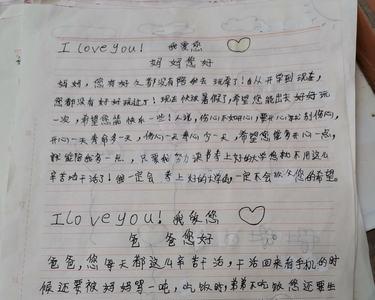 I love you! 我爱您
妈妈您好
妈妈,您有好久都没有陪我去玩磨了!自从开学到现在,
您都没有好好玩过了!现在快放暑假了,希望您能出去好好玩
一次,希望您能快乐一些!人说,伤心不如开心,要开心别伤心,
开心一天寿命多一天,伤心一天寿命少一天,希望您能够开心一点,
就能陪我多一点,只要我努力读书考上好的大学您就不用这么
辛苦干活了!但一定会考上好的大学的,一定不会让您的希望。
I love you! 我爱您
爸爸您好
爸爸,您每天都这么辛苦干活,干活回来看手机的时
候还要被妈妈骂一吨,吃饭时,弟弟不吃饭您还要生